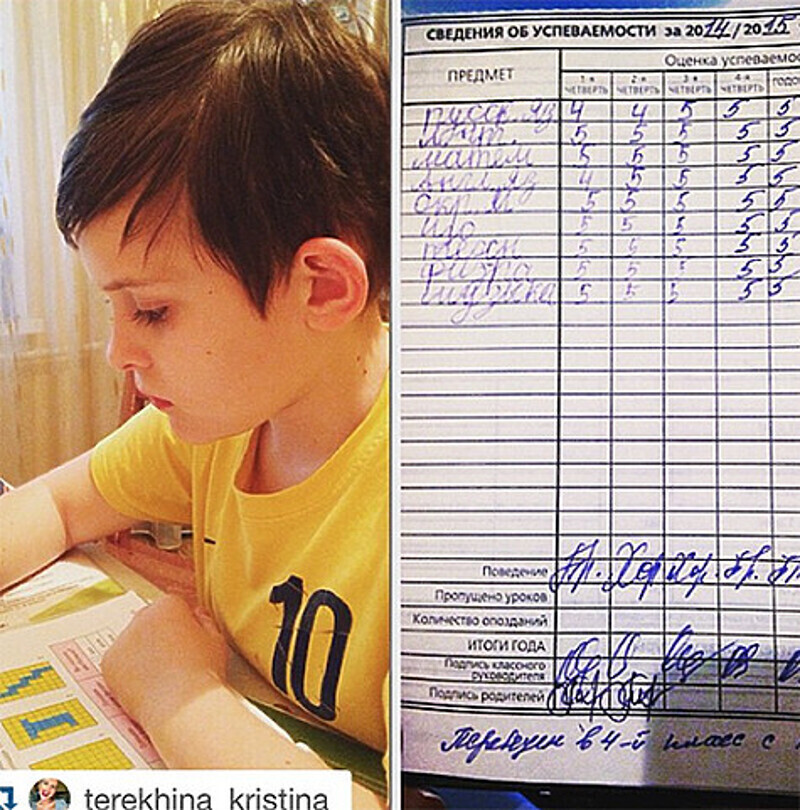 10
terekhina_kristina
СВЕДЕНИЯ ОБ УСПЕВАЕМОСТИ за 2014/2015
ПРЕДМЕТ Оценка успеваемос
1-я ЧЕТВЕРТЬ 2-я ЧЕТВЕРТЬ 3-я ЧЕТВЕРТЬ 4-я ЧЕТВЕРТЬ годо
русск. яз 4 4 5 5 5
лит. 5 5 5 5 5
матем 5 5 5 5 5
англ. яз 4 5 5 5 5
окр. м 5 5 5 5 5
изо 5 5 5 5 5
техн 5 5 5 5 5
физра 5 5 5 5 5
музыка 5 5 5 5 5
Поведение Пр. Хор Хор. Пр.
Пропущено уроков
Количество опозданий
ИТОГИ ГОДА
Подпись классного
руководителя
Подпись родителей
Переведен в 4-й класс с